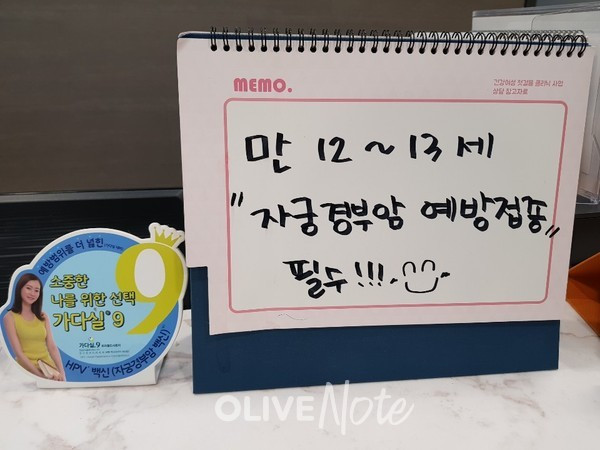 MEMO.
건강여성 첫걸음 클리닉 사업
상담 참고자료
만 12~13세
"자궁경부암 예방접종"
필수!!!
예방범위를 더 넓힌
소중한
나를 위한 선택
가다실®9
9
가다실.9
HPV 백신(자궁경부암 백신)
OLIVE Note